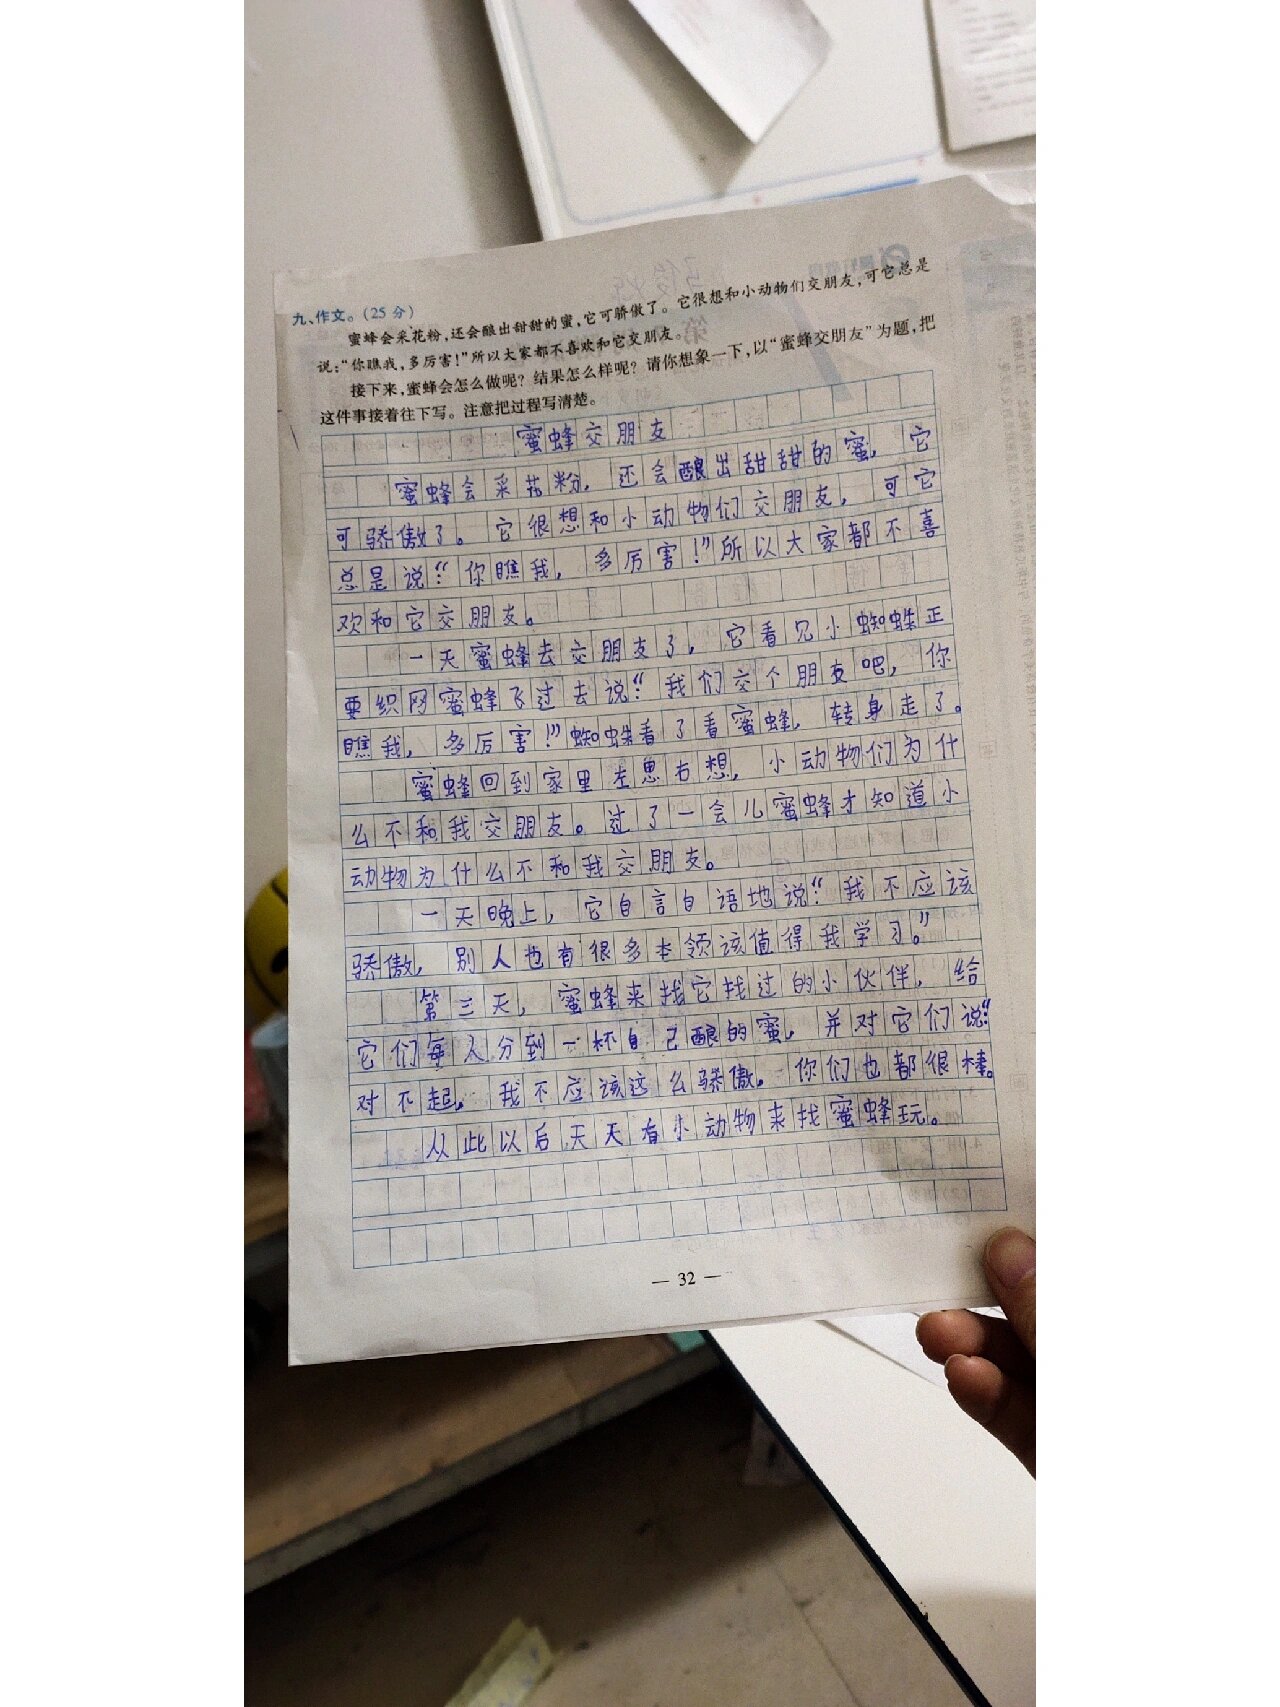 九、作文。(25 分)
蜜蜂会采花粉,还会酿出甜甜的蜜,它可骄傲了。它很想和小动物们交朋友,可它总是
说:“你瞧我,多厉害!”所以大家都不喜欢和它交朋友。
接下来,蜜蜂会怎么做呢?结果怎么样呢?请你想象一下,以“蜜蜂交朋友”为题,把
这件事接着往下写。注意把过程写清楚。
蜜蜂交朋友
蜜蜂会采花粉,还会酿出甜甜的蜜,它
可骄傲了。它很想和小动物们交朋友,可它
总是说:“你瞧我,多厉害!”所以大家都不喜
欢和它交朋友。
一天蜜蜂去交朋友了,它看见小蜘蛛正
要织网蜜蜂飞过去说:“我们交个朋友吧,你
瞧我,多厉害!”蜘蛛看了看蜜蜂,转身走了。
蜜蜂回到家里左思右想,小动物们为什
么不和我交朋友。过了一会儿蜜蜂才知道小
动物为什么不和我交朋友。
一天晚上,它自言自语地说:“我不应该
骄傲,别人也有很多本领该值得我学习。”
第三天,蜜蜂来找它找过的小伙伴,给
它们每人分到一杯自己酿的蜜,并对它们说:“
对不起,我不应该这么骄傲。你们也都很棒。
从此以后天天有小动物来找蜜蜂玩。
— 32 —